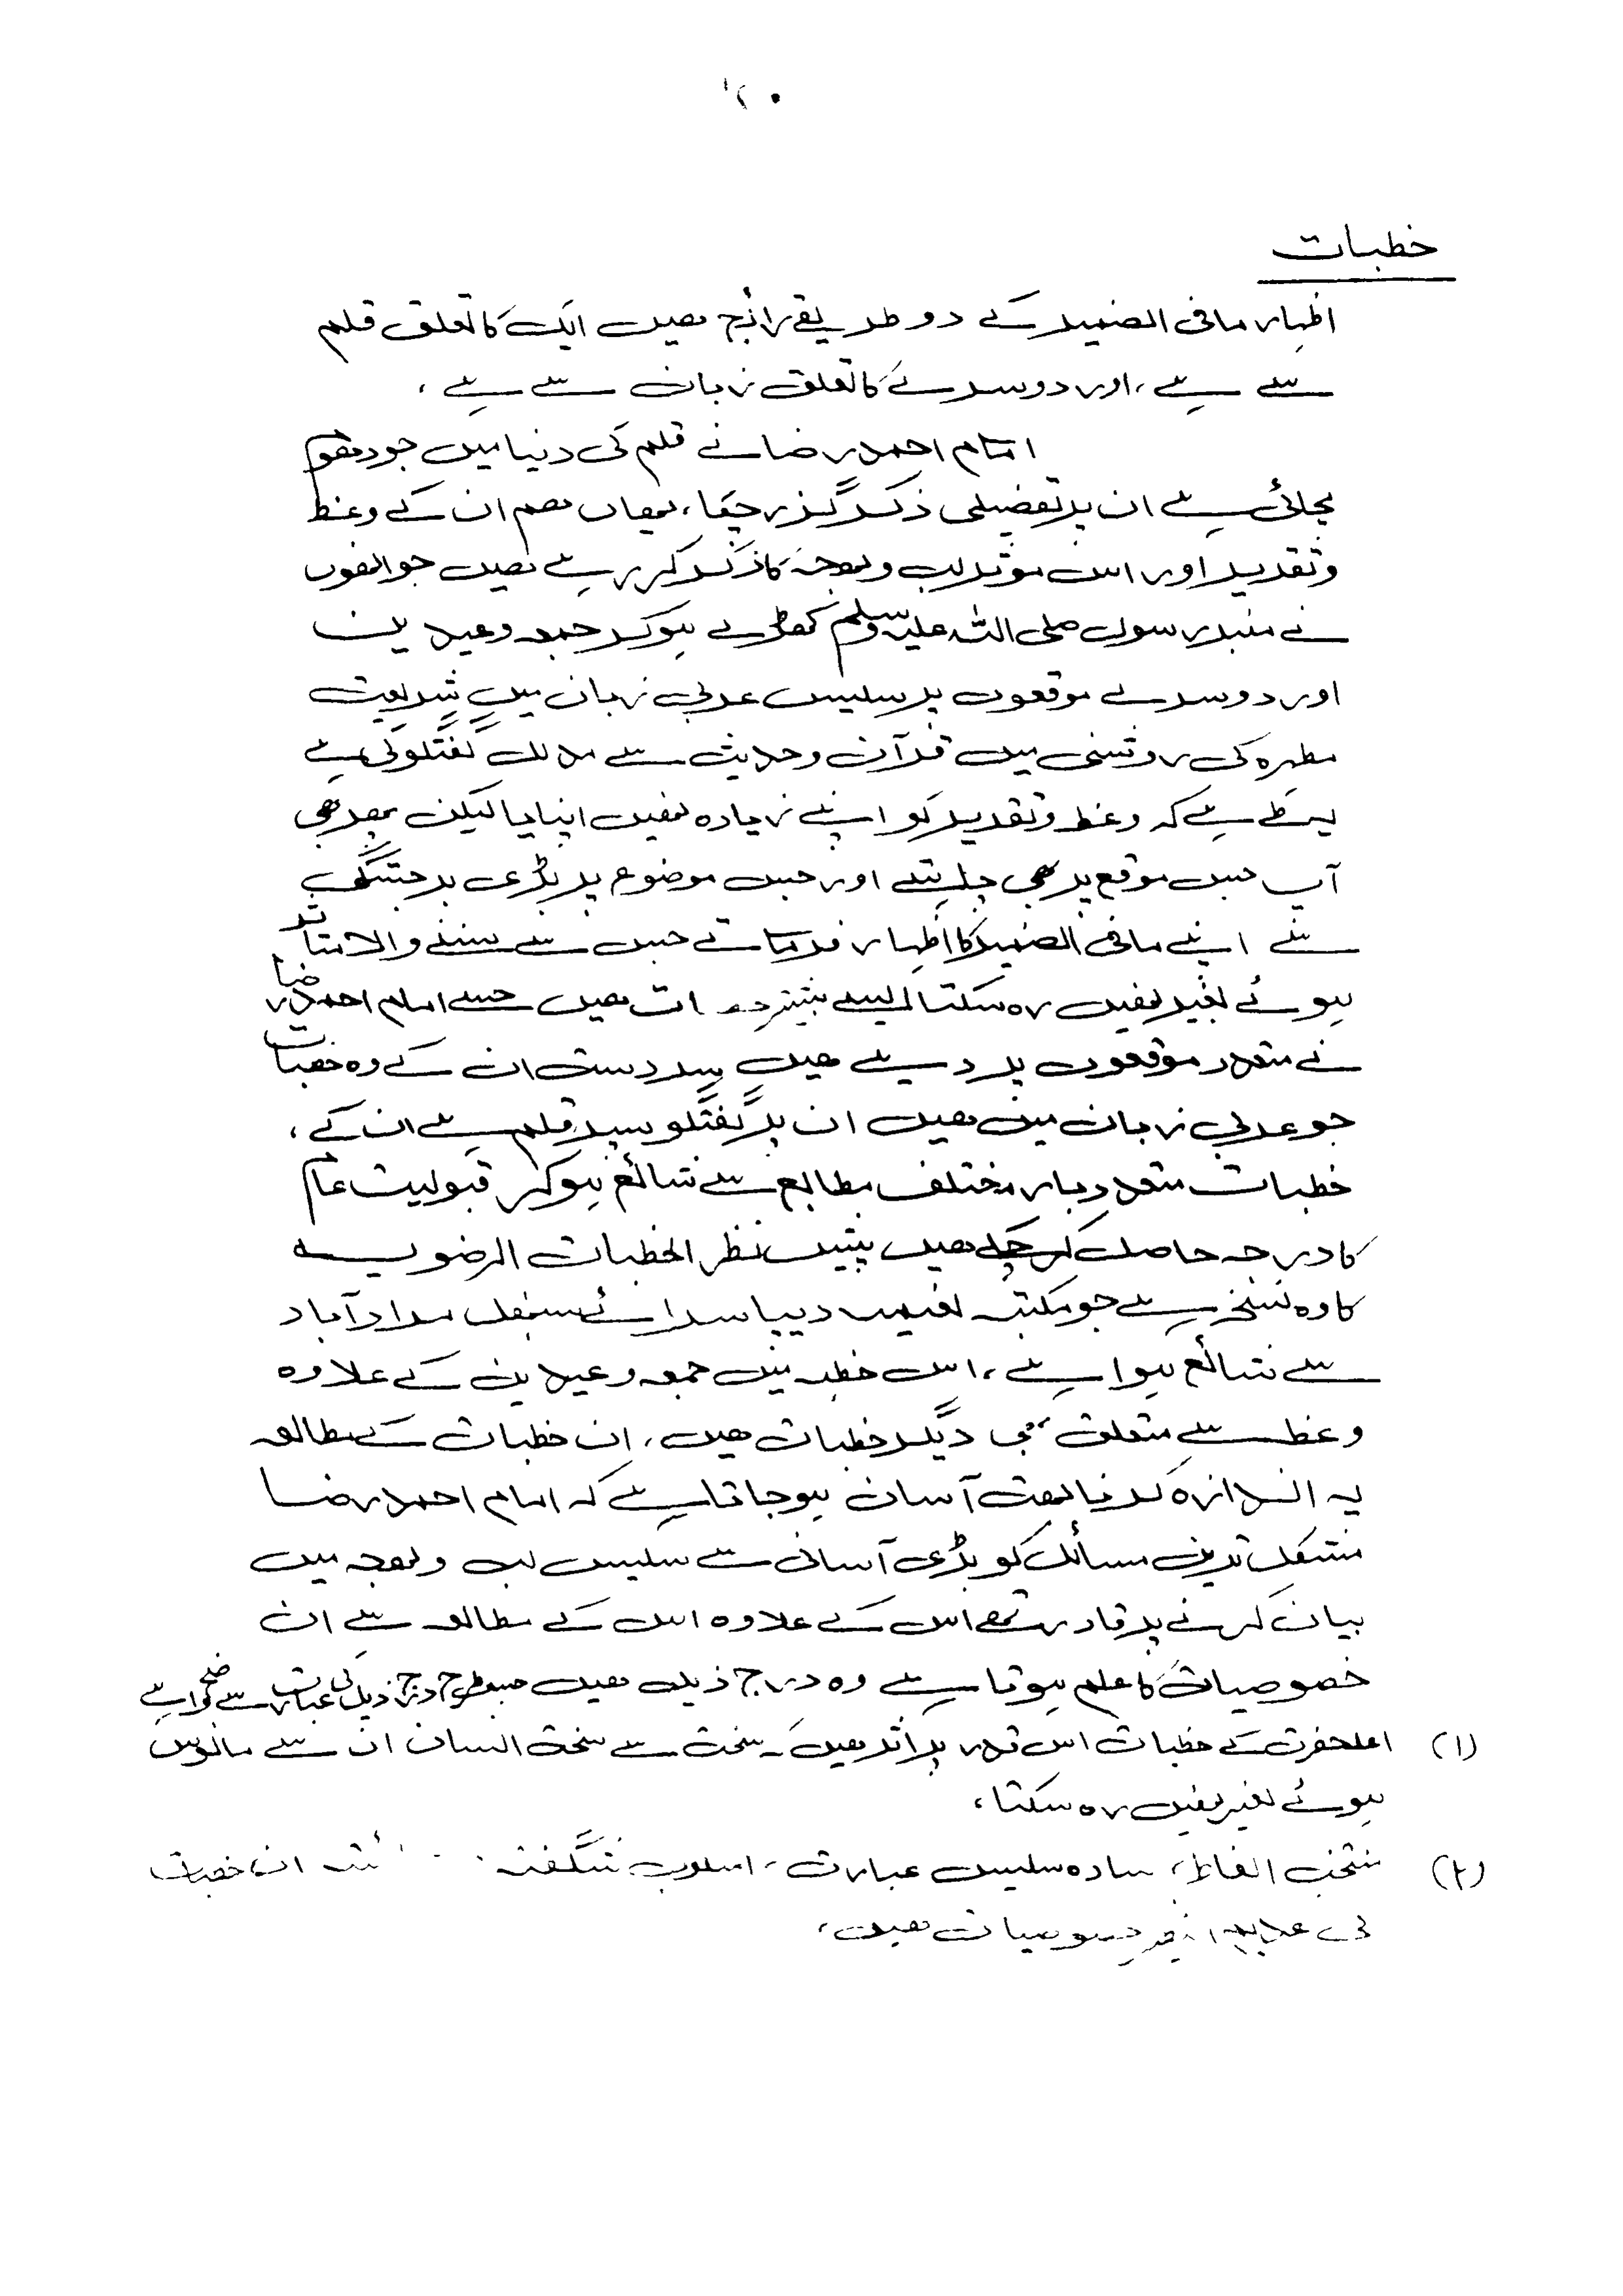 خطبات
اظہار مافی الضمیر کے دو طریقے رائج ھیں ایک کا تعلق قلم
سے ہے، اور دوسرے کا تعلق زبان سے ہے،
امام احمد رضا نے قلم کی دنیا میں جو دھوم
مچائی ہے ان پر تفصیلی ذکر گذر چکا، یھاں ھم ان کے وعظ
و تقدیر اور اس موثر لب ولھجہ کا ذکر کر رہے ھیں جو انھوں
نے منبر رسول صلی اللہ علیہ وسلم کھڑے ہوکر جمعہ وعیدین
اور دوسرے موقعوں پر سلیس عربی زبان میں شریعت
مطہرہ کی روشنی میں قرآن وحدیث سے مدلل گفتگو کی ہے
یہ طے ہے کہ وعظ وتقریر کو اپنے زیادہ نھیں اپنایا لیکن پھر بھی
آپ جس موقع پر بھی چاہتے اور جس موضوع پر بڑی برجستگی
سے اپنے مافی الضمیر کا اظہار فرماتے جس سے سننے والا متاثر
ہوئے بغیر نھیں رہ سکتا ایسے بیشتر ات ھیں جسے امام احمد رضا
نے متعدد موقعوں پر دیے ھیں سردست ان کے وہ خطبات
جو عربی زبان میں ھیں ان پر گفتگو سپرد قلم ہے ان کے،
خطبات متعدد بار مختلف مطابع سے شائع ہوکر قبولیت عام
کا درجہ حاصل کر چکے ھیں پیش نظر الخطبات الرضویہ
کا وہ نسخہ ہے جو مکتبہ نعیمیہ دیپا سرائے سنبھل مرادآباد
سے شائع ہوا ہے، اس خطبہ میں جمعہ وعیدین کے علاوہ
وعظ سے متعلق بھی دیگر خطبات ھیں، ان خطبات کے مطالعہ
یہ اندازہ کرنا بھت آسان ہوجاتا ہے کہ امام احمد رضا
مشکل ترین مسائل کو بڑی آسانی سے سلیس لب ولھجہ میں
بیان کرنے پر قادر تھے اس کے علاوہ اس کے مطالعہ سے ان
خصوصیات کا علم ہوتا ہے وہ درج ذیل ھیں جسطرح درج ذیل کی عبارت سے واضح ہے
(۱) اعلحضرت کے خطبات اس قدر پر اثر ھیں کہ سخت سے سخت انسان ان سے مانوس
ہوئے بغیر نھیں رہ سکتا،
(۲) منتخب الفاظ، سادہ سلیس عبارت، اسلوب شگفتہ ان خطبات
کی خصوصیات ھیں،